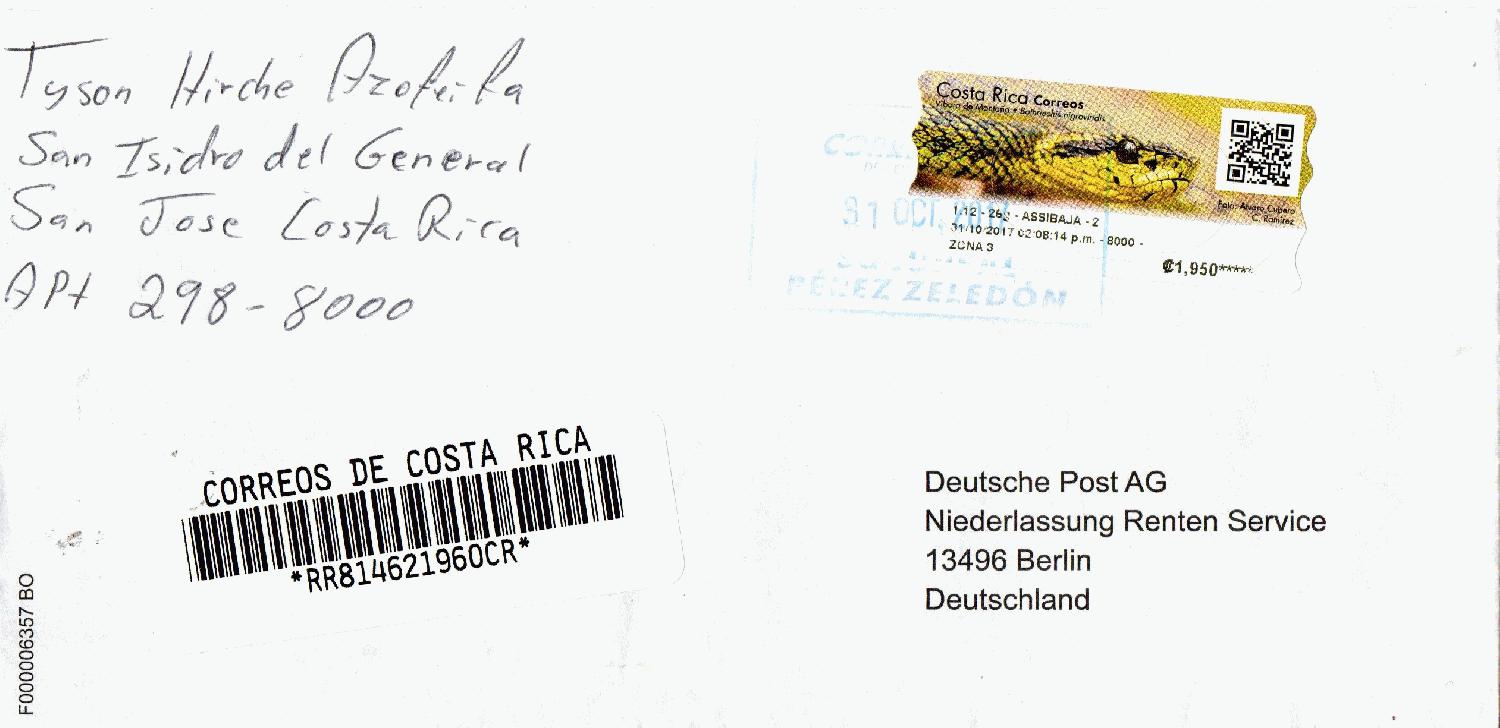 Tyson Hirche Azofeifa
San Isidro del General
San Jose Costa Rica
APt 298-8000
Costa Rica Correos
Víbora de Montaña • Bothriechis nigroviridis
Foto: Alvaro Cubero
C. Ramírez
31 OCT, 2017
PÉREZ ZELEDÓN
1.12 - 268 - ASSIBAJA - 2
31/10/2017 02:08:14 p.m. - 8000 -
ZONA 3
₡1,950*****
CORREOS DE COSTA RICA
*RR814621960CR*
Deutsche Post AG
Niederlassung Renten Service
13496 Berlin
Deutschland
F000006357 BO